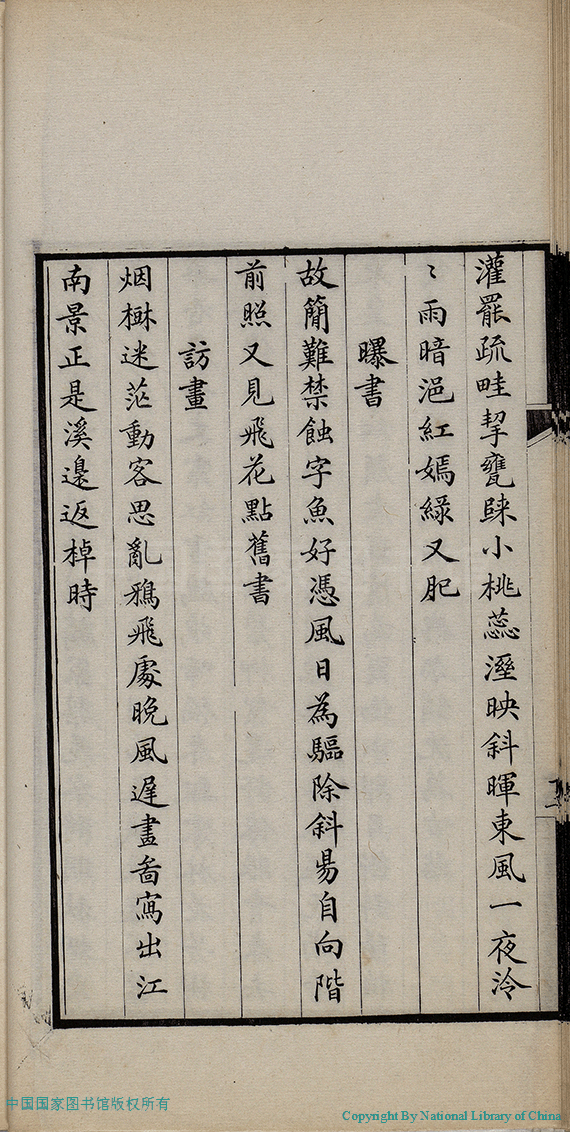 灌罷疏畦挈甕歸小桃蕊溼映斜暉東風一夜泠
〻雨暗浥紅嫣綠又肥
曝書
故簡難禁蝕字魚好憑風日為驅除斜昜自向階
前照又見飛花點舊書
訪畫
烟樹迷茫動客思亂鴉飛處晚風遲畫啚寫出江
南景正是溪邊返棹時
中国国家图书馆版权所有
Copyright By National Library of China